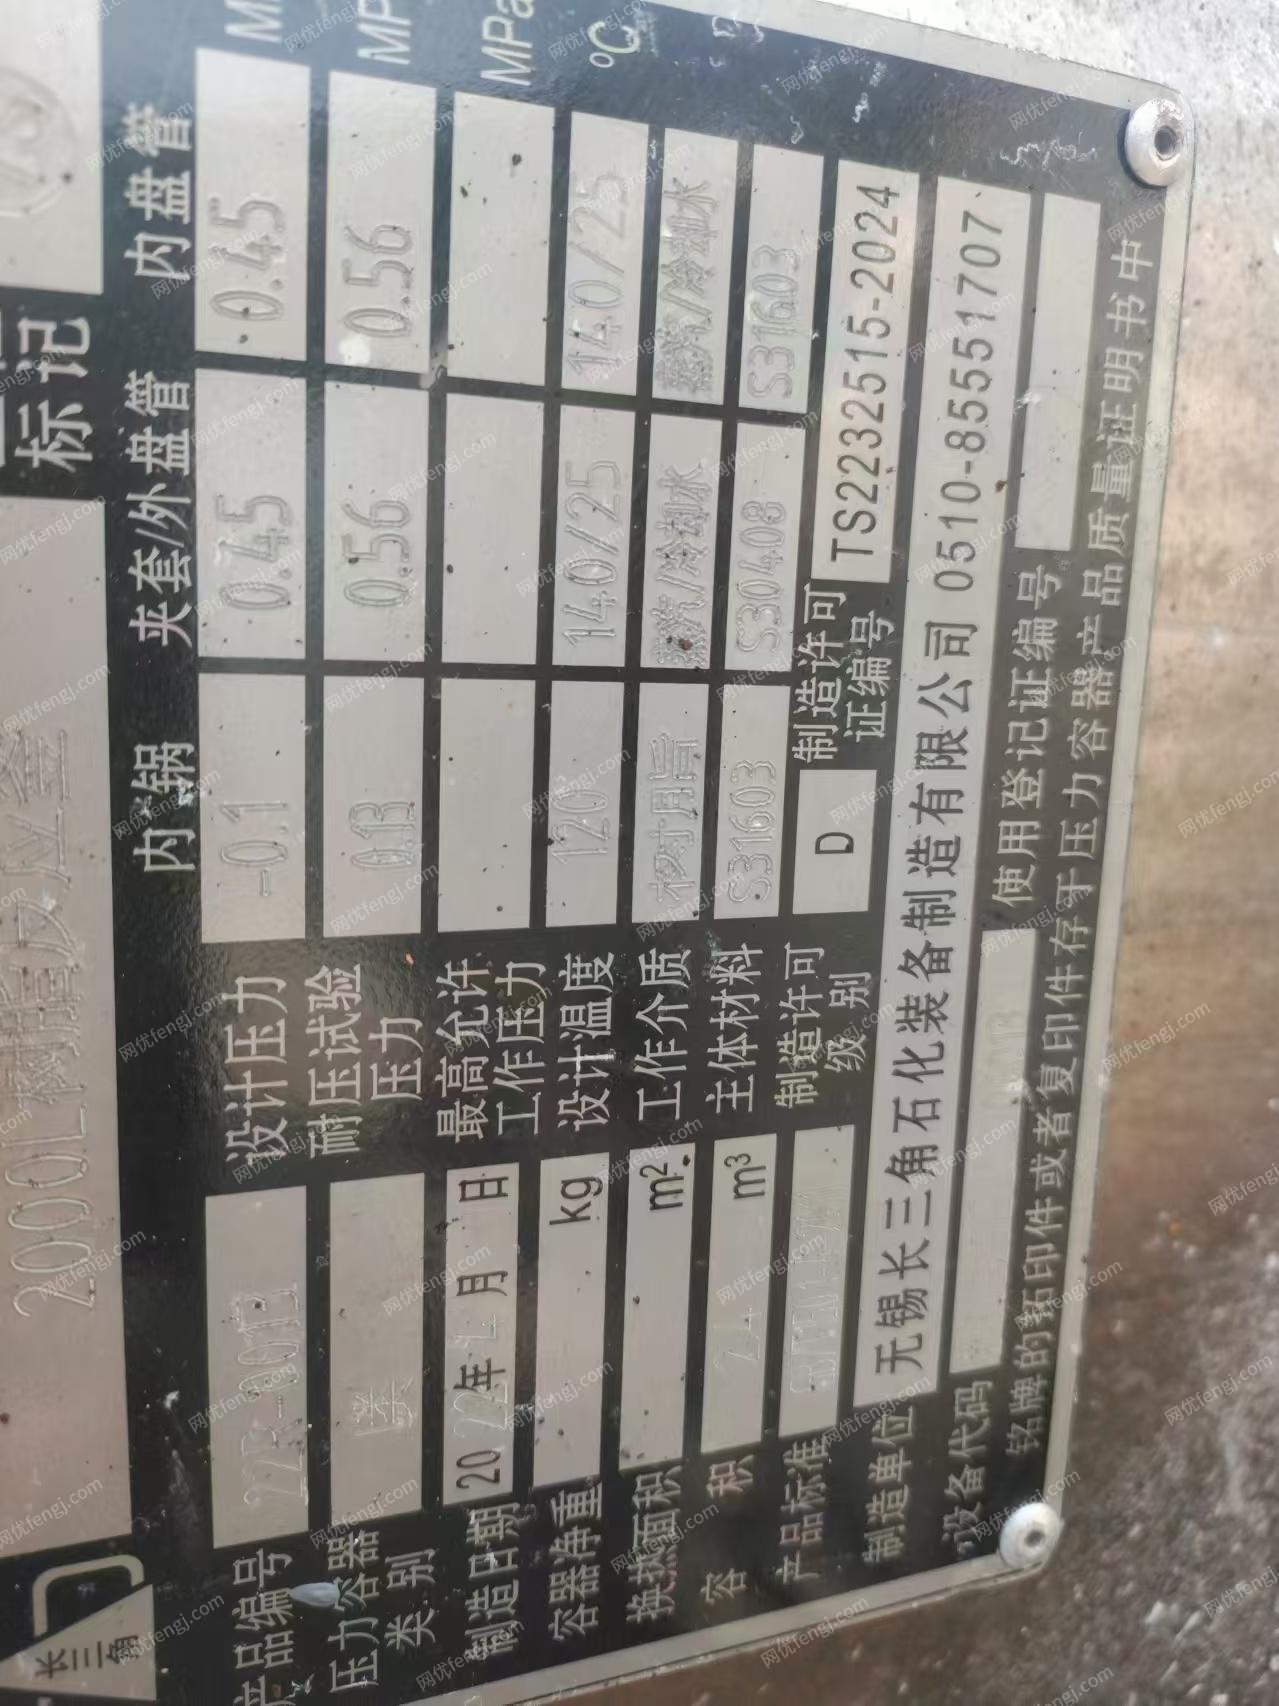 长三角
2000L树脂反应釜
标记
内锅 夹套/外盘管 内盘管
产品编号 22R-001B 设计压力 -0.1 0.45 0.45
压力容器类别 耐压试验压力 0.56 0.56
制造日期 2022年 月 日 最高允许工作压力 MPa
容器净重 kg 设计温度 120 140/25 140/25 ℃
换热面积 m² 工作介质 树脂 蒸汽/冷却水 蒸汽/冷却水
容积 2.4 m³ 主体材料 S31603 S30408 S31603
产品标准 制造许可级别 D 制造许可证编号 TS2232515-2024
制造单位 无锡长三角石化装备制造有限公司 0510-85551707
设备代码 使用登记证编号
铭牌的拓印件或者复印件存于压力容器产品质量证明书中
网优fengj.com